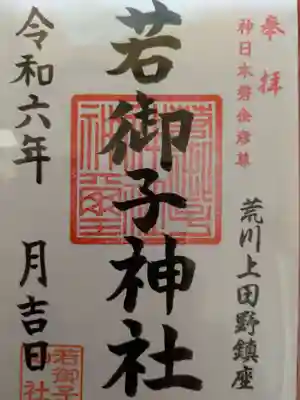 奉拝
神日本磐余彦尊
荒川上田野鎮座
若御子神社
令和六年 月吉日
若御子